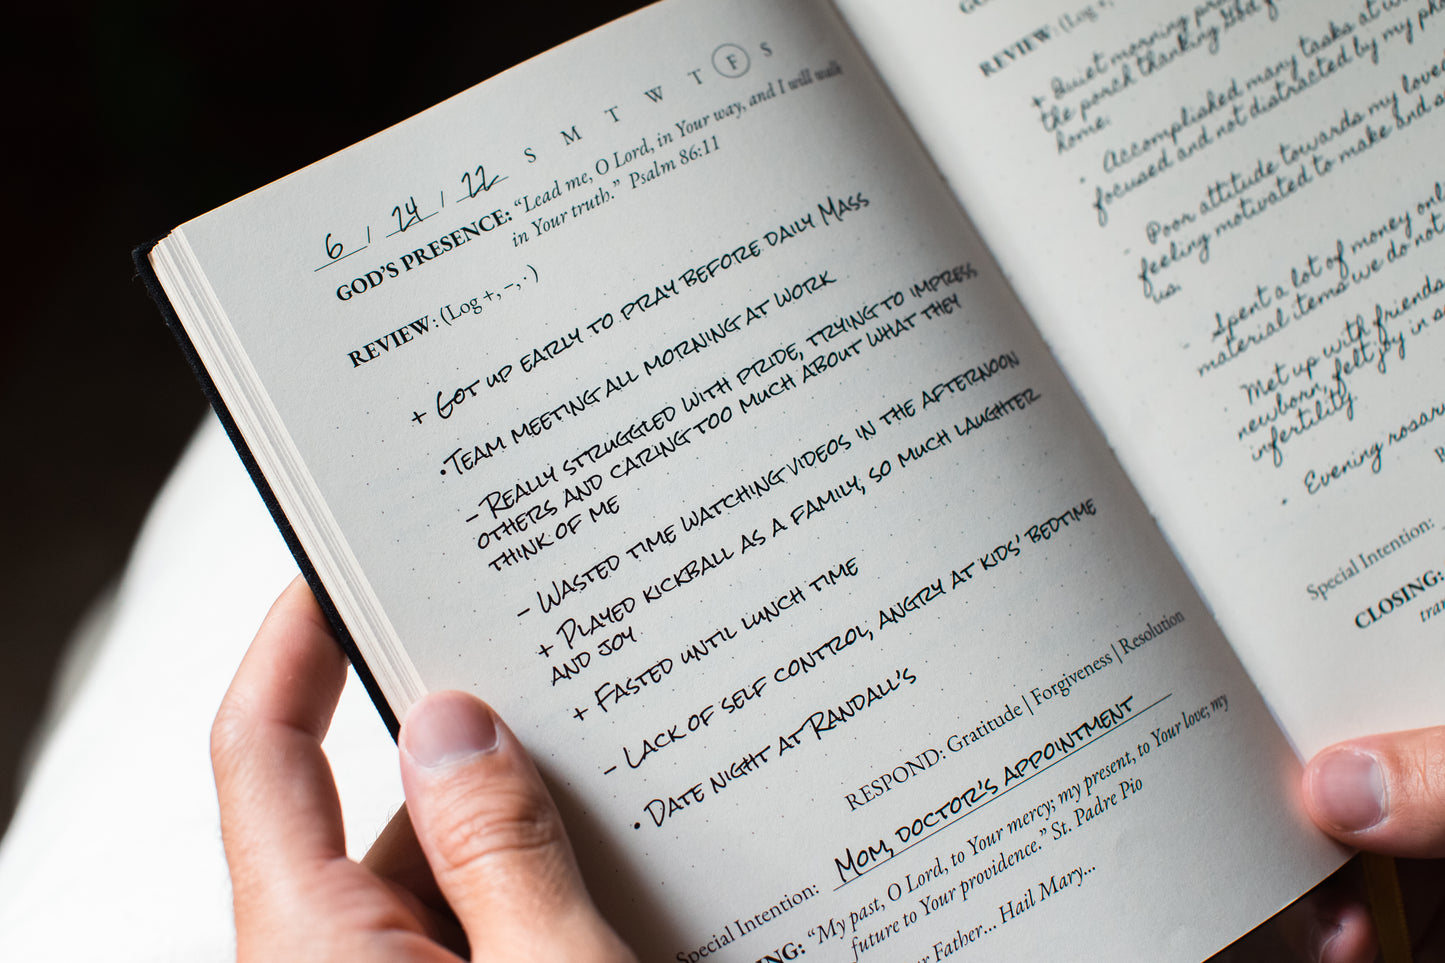 S M T W T F S
6 / 24 / 22
GOD'S PRESENCE: “Lead me, O Lord, in Your way, and I will walk
in Your truth.” Psalm 86:11
REVIEW: (Log +, –, ·)
+ GOT UP EARLY TO PRAY BEFORE DAILY MASS
• TEAM MEETING ALL MORNING AT WORK
– REALLY STRUGGLED WITH PRIDE, TRYING TO IMPRESS
OTHERS AND CARING TOO MUCH ABOUT WHAT THEY
THINK OF ME
– WASTED TIME WATCHING VIDEOS IN THE AFTERNOON
+ PLAYED KICKBALL AS A FAMILY, SO MUCH LAUGHTER
AND JOY
+ FASTED UNTIL LUNCH TIME
– LACK OF SELF CONTROL, ANGRY AT KIDS' BEDTIME
• DATE NIGHT AT RANDALL'S
RESPOND: Gratitude | Forgiveness | Resolution
Special Intention: MOM, DOCTOR'S APPOINTMENT
“My past, O Lord, to Your mercy; my present, to Your love; my
future to Your providence.” St. Padre Pio
Father... Hail Mary...
REVIEW: (Log +,
+ Quiet morning
the porch thanking God
home.
• Accomplished many tasks at
focused and not distracted by my
- Poor attitude towards my loved
feeling motivated to make and
us.
- Spent a lot of money
material items we do not
• Met up with friends
newborn, felt joy in
infertility.
• Evening
Special Intention:
CLOSING: